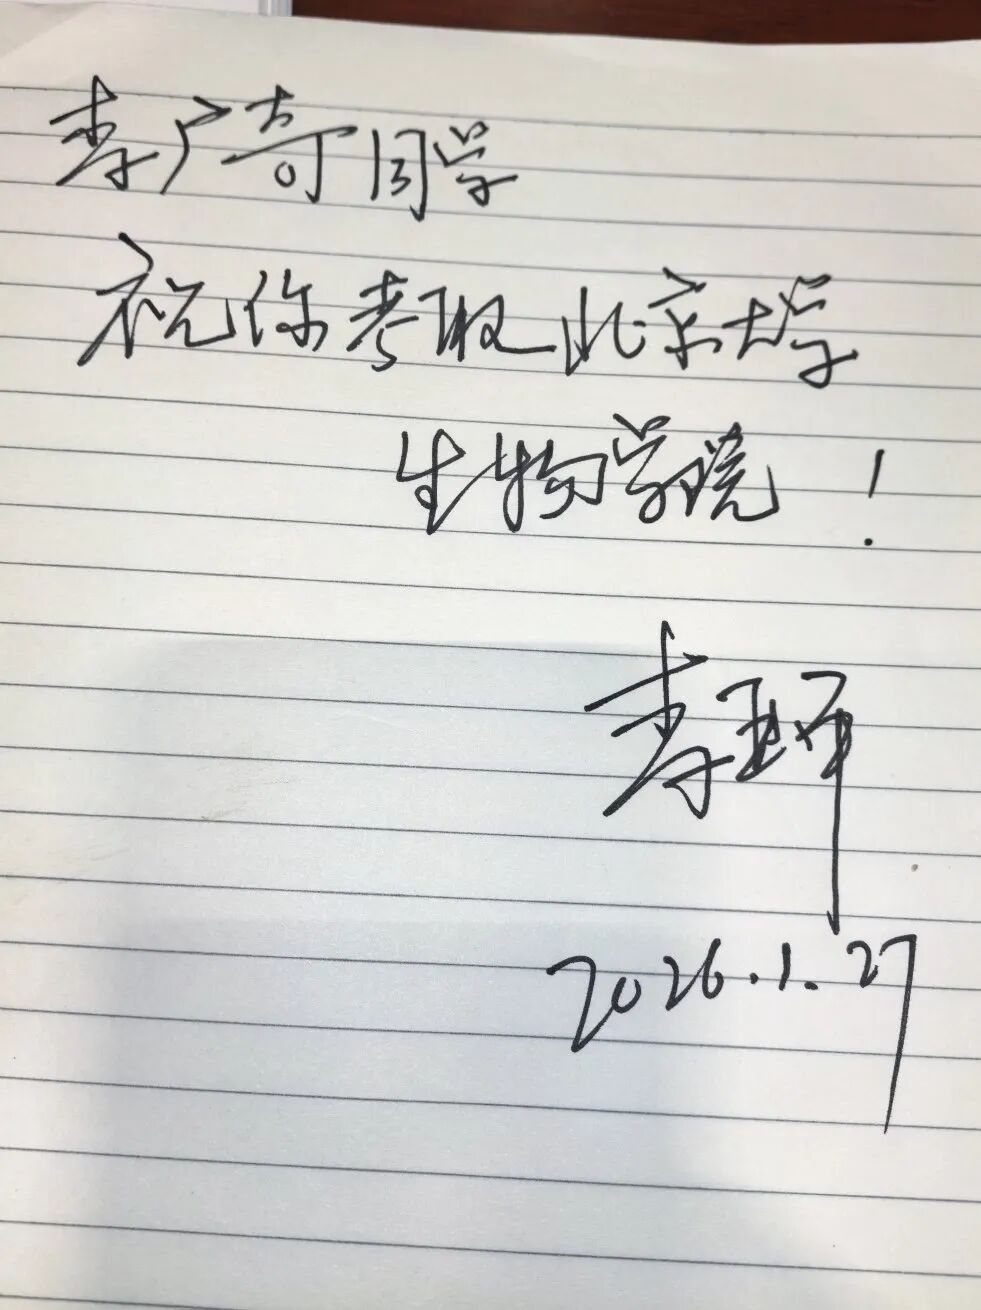 李广奇同学
祝你考取北京大学
生物学院！
李
2026.1.27